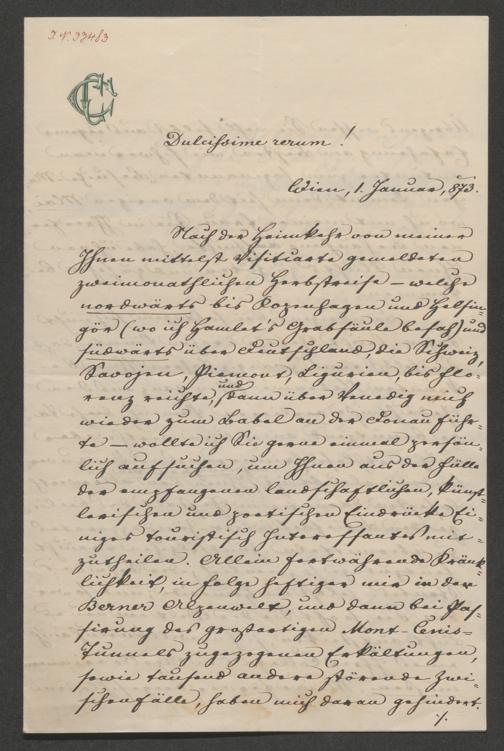 I.N. 33483
Dulcissime rerum!
Wien, 1. Januar, 873.
Nach der Heimkehr von meiner
Ihnen mittelst Visitkarte gemeldeten
zweimonathlichen Herbstreise – welche
nordwärts bis Kopenhagen und Helsin-
gör (wo ich Hamlet's Grabsäule besah) und
südwärts über Deutschland, die Schweiz,
Savojen, Piemont, Ligurien, bis Flo-
renz reichte, und dann über Venedig mich
wieder zum Babel an der Donau führ-
te – wollte ich Sie gerne einmal persön-
lich aufsuchen, um Ihnen aus der Fülle
der empfangenen landschaftlichen, künst-
lerischen und poetischen Eindrücke Ei-
niges touristisch Interessantes mit-
zutheilen. Allein fortwährende Kränk-
lichkeit, in Folge heftiger mir in der
Berner Alpenwelt, und dann bei Pas-
sirung des großartigen Mont-Cenis-
Tunnels zugezogenen Erkältungen,
sowie tausend andere störende Zwi-
schenfälle, haben mich daran gehindert.
./.